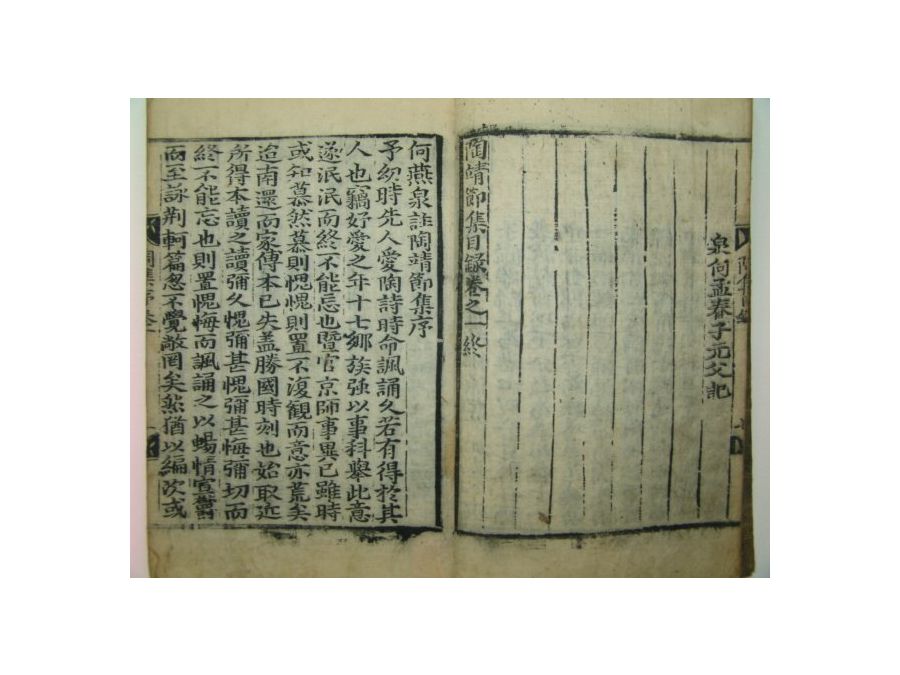 泉何孟春子元父記
陶靖節集目錄卷之一終
何燕泉註陶靖節集序
予幼時先人愛陶詩時命諷誦久若有得於其
人也竊好愛之年十七鄉族強以事科舉此意
遂泯泯而終不能忘也暨官京師事異已雖時
或知慕然慕則愧愧則置不復觀而意亦荒矣
迨南還而家傳本已失盖勝國時刻也始取近
所得本讀之讀彌久愧彌甚愧彌甚悔彌切而
終不能忘也則置愧悔而諷誦之以暢情宣鬱
而至詠荆軻篇忽不覺敵罔矣然猶以編次或